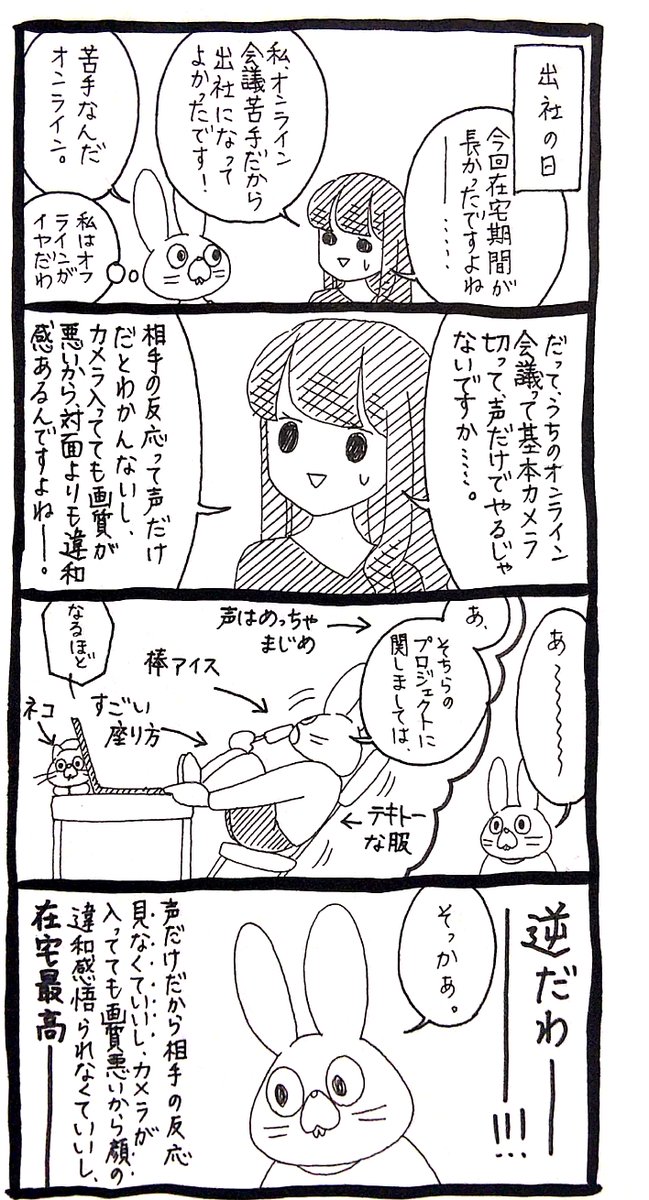 出社の日
今回在宅期間が
長かったですよね
ーー……
私、オンライン
会議苦手だから
出社になって
よかったです!
苦手なんだ
オンライン。
私はオフ
ラインが
イヤだわ
だって、うちのオンライン
会議って基本カメラ
切って、声だけでやるじゃ
ないですか……。
相手の反応って声だけ
だとわかんないし、
カメラ入ってても画質が
悪いから、対面よりも違和
感あるんですよねー。
あ〜〜〜
あ、
そちらの
プロジェクトに
関しましては、
声はめっちゃ
まじめ
棒アイス
すごい
座り方
なるほど
ネコ
テキトー
な服
逆だわー
ーー!!!
そっかぁ。
声だけだから相手の反応
見なくていいし、カメラが
入ってても画質悪いから顔の
違和感悟られなくていいし、
在宅最高ーー